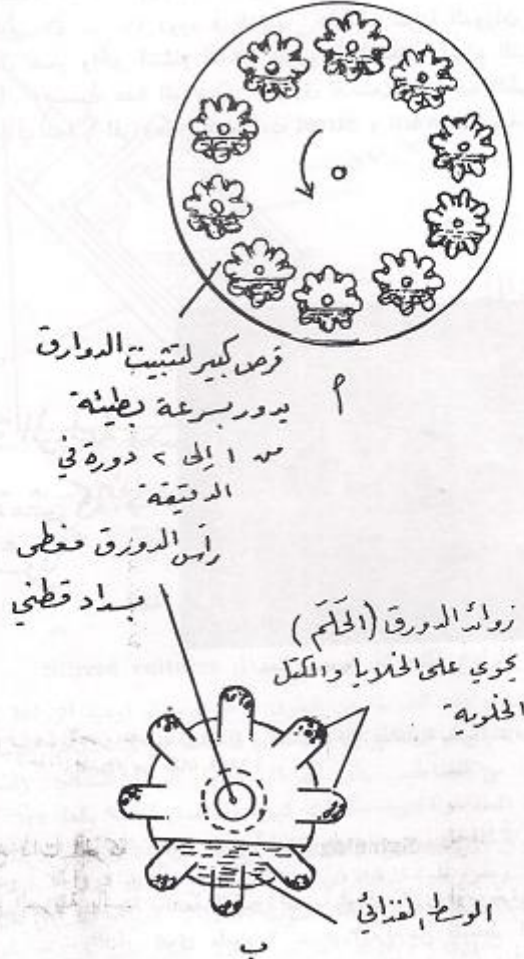 قرص كبير لتثبيت الدوارق
يدور بسرعة بطيئة
من ١ إلى ٢ دورة في
الدقيقة
أ
رأس الدورق مغطى
بسداد قطني
زوائد الدورق (الحَلَم)
يحوي على الخلايا والكتل
الخلوية
الوسط الغذائي
ب